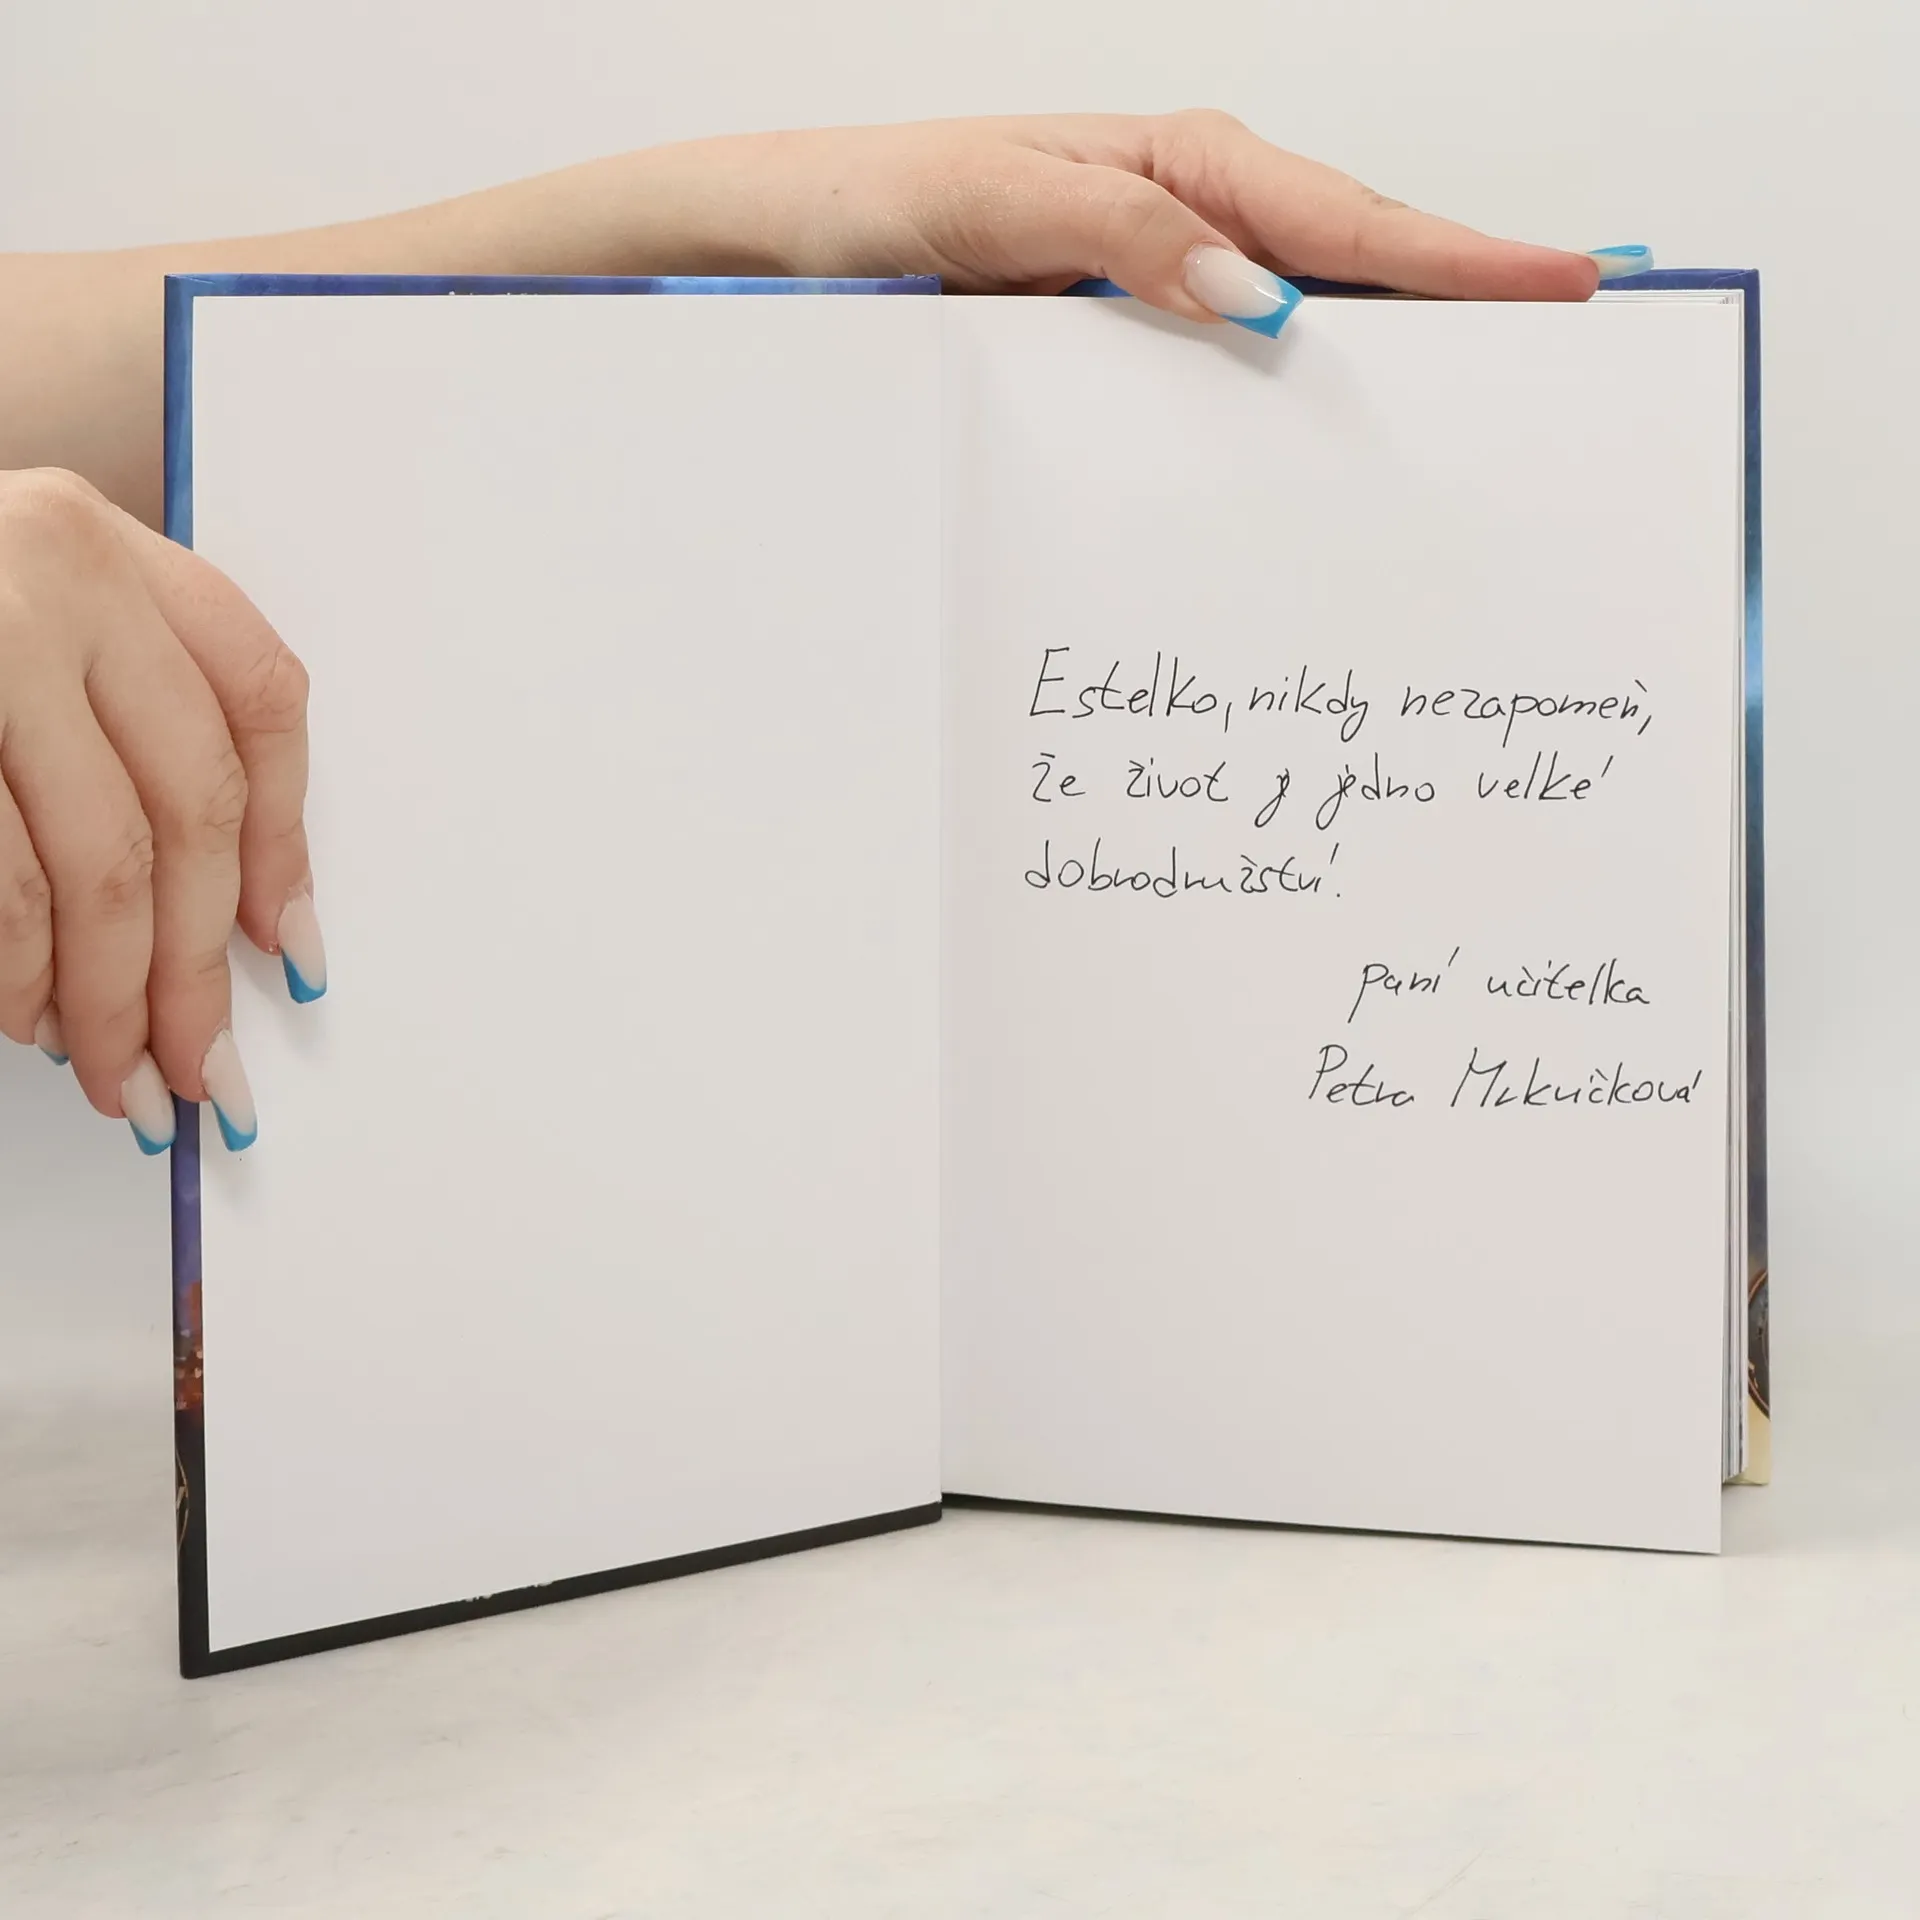 Estelko, nikdy nezapomeň,
že život je jedno velké
dobrodružství.
paní učitelka
Petra Mrkvičková